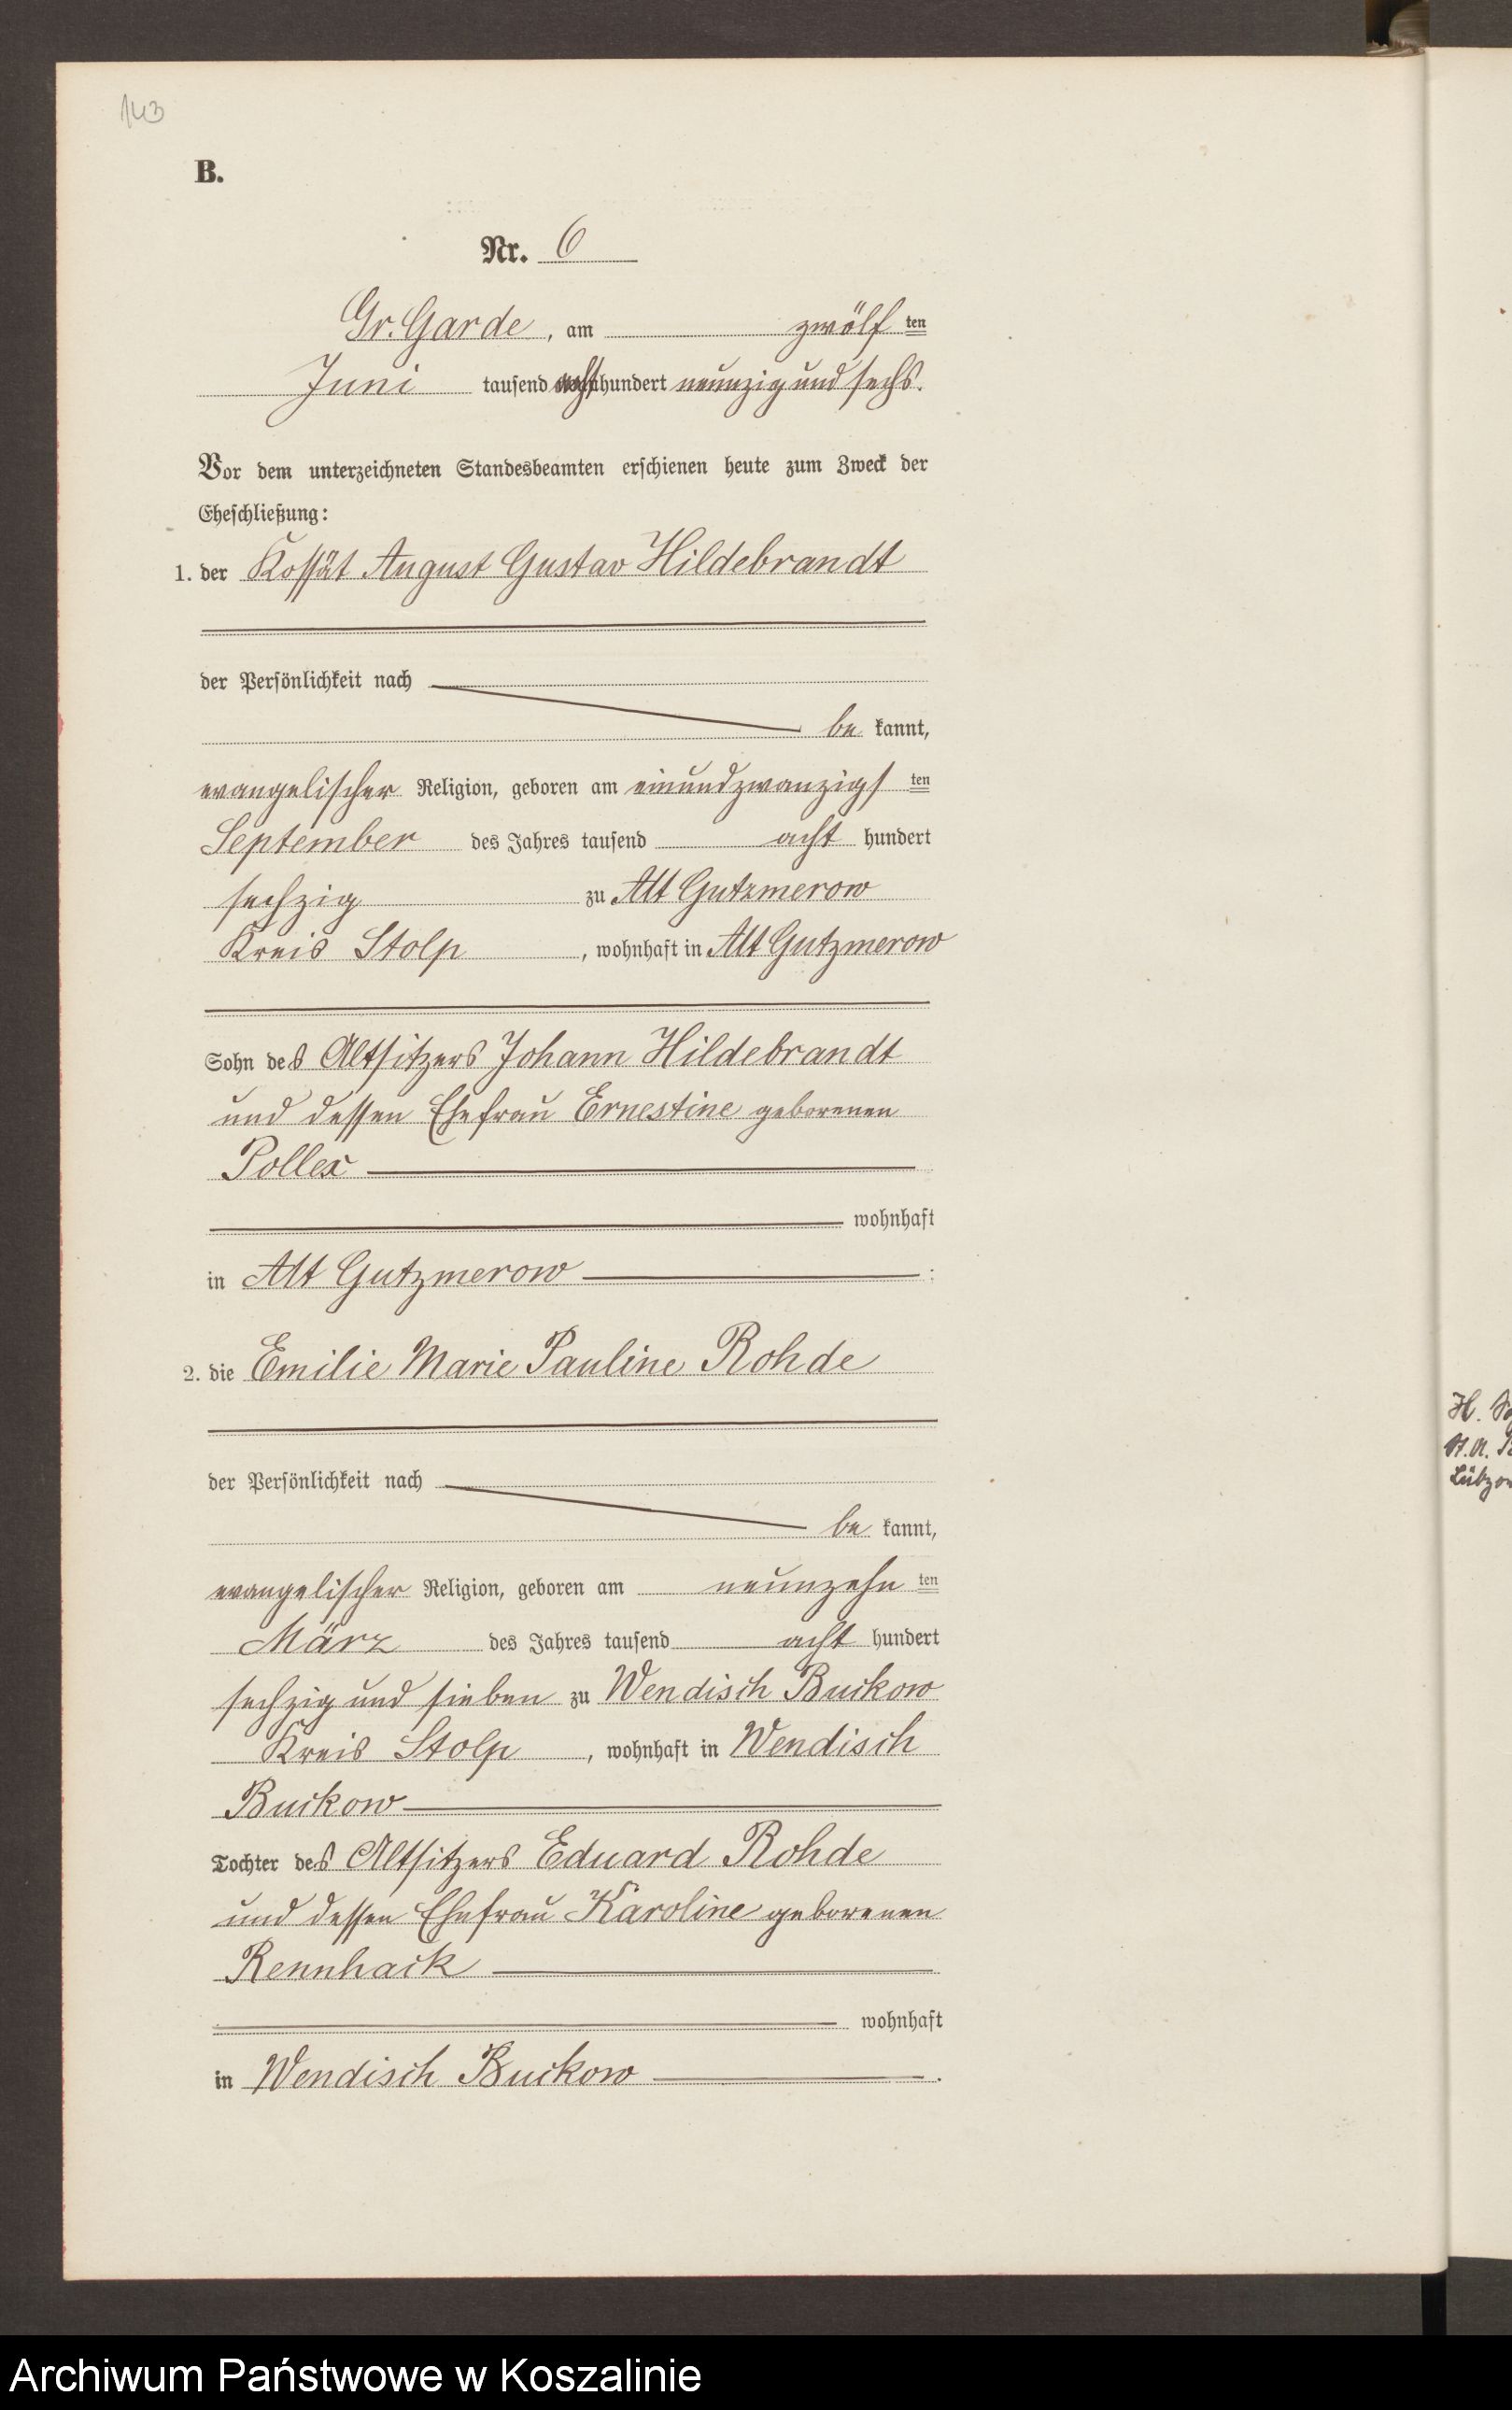 143
B.
Nr. 6
Gr. Garde, am zwölf ten
Juni tausend acht hundert neunzig und sechs.
Vor dem unterzeichneten Standesbeamten erschienen heute zum Zweck der
Eheschließung:
1. der Kossät August Gustav Hildebrandt
der Persönlichkeit nach
be kannt,
evangelischer Religion, geboren am einundzwanzigs ten
September des Jahres tausend acht hundert
sechzig zu Alt Gutzmerow
Kreis Stolp, wohnhaft in Alt Gutzmerow
Sohn des Altsitzers Johann Hildebrandt
und dessen Ehefrau Ernestine geborenen
Pollex
wohnhaft
in Alt Gutzmerow :
2. die Emilie Marie Pauline Rohde
der Persönlichkeit nach
be kannt,
evangelischer Religion, geboren am neunzehn ten
März des Jahres tausend acht hundert
sechzig und sieben zu Wendisch Buckow
Kreis Stolp, wohnhaft in Wendisch
Buckow
Tochter des Altsitzers Eduard Rohde
und dessen Ehefrau Karoline geborenen
Rennhack
wohnhaft
in Wendisch Buckow .
H.
St. A.
Archiwum Państwowe w Koszalinie